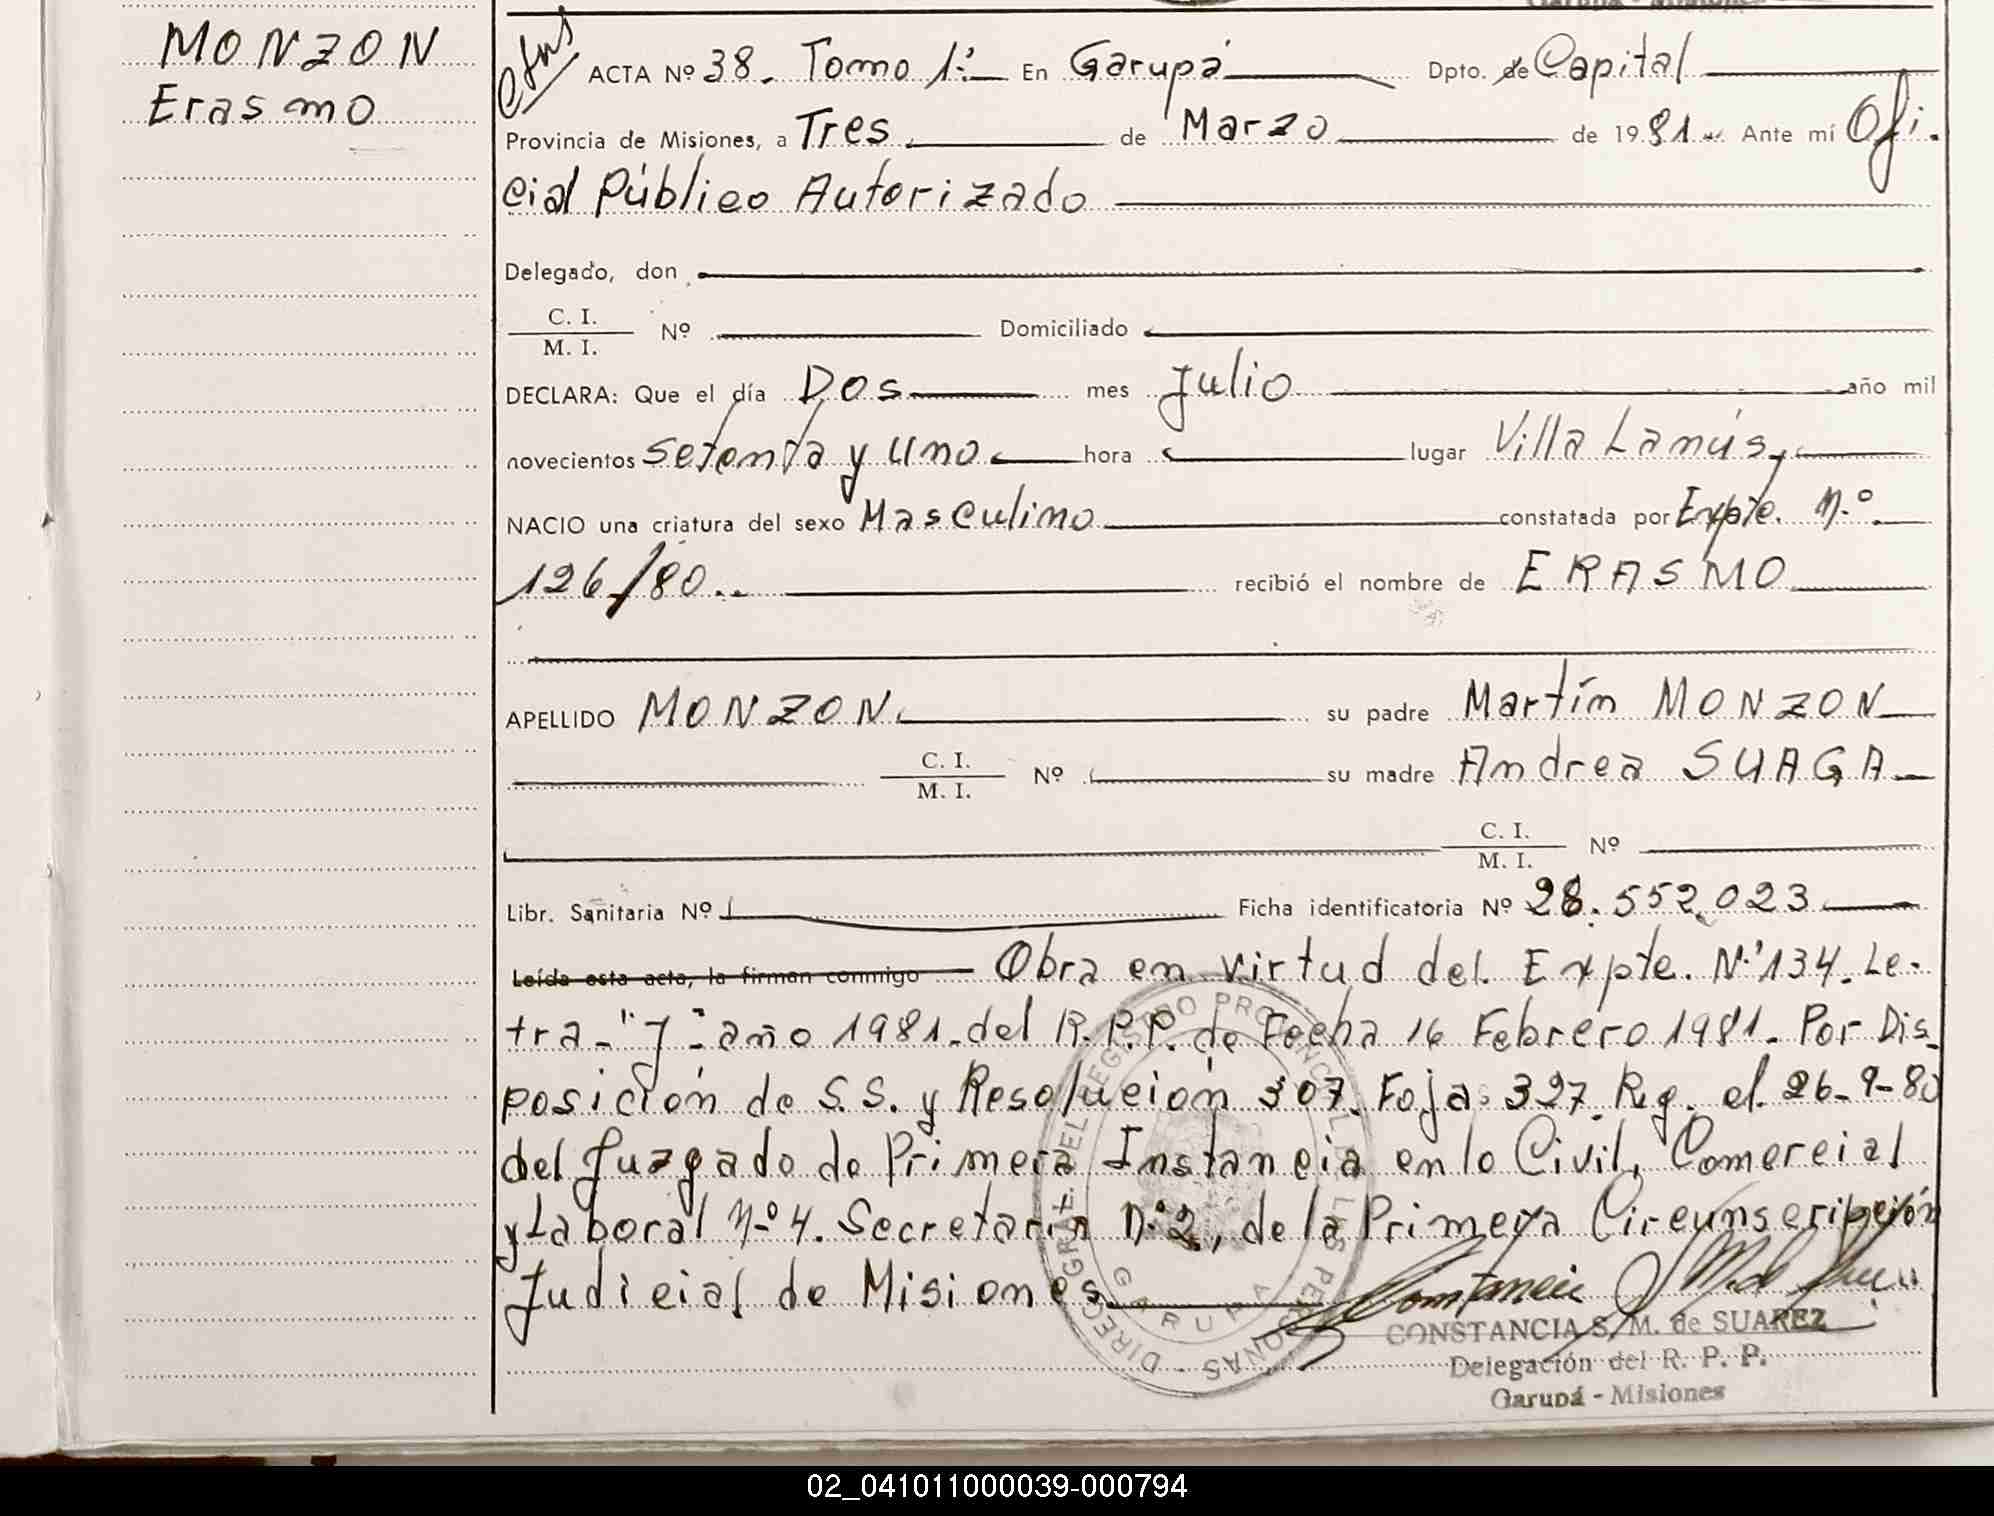 MONZON
Erasmo
ACTA Nº 38. Tomo 1º En Garupá Dpto. de Capital
Provincia de Misiones, a Tres de Marzo de 1981 Ante mí Ofi.
cial Público Autorizado
Delegado, don
C. I.
M. I.
Nº Domiciliado
DECLARA: Que el día Dos mes Julio año mil
novecientos setenta y uno hora lugar Villa Lanús,
NACIO una criatura del sexo Masculino constatada por Expte. N.º
126/80.. recibió el nombre de ERASMO
APELLIDO MONZON su padre Martín MONZON
C. I.
M. I.
Nº su madre Andrea SUAGA
C. I.
M. I.
Nº
Libr. Sanitaria Nº Ficha identificatoria Nº 28.552.023
Leída esta acta, la firman conmigo Obra en virtud del Expte. N.º 134. Le-
tra "J" año 1981. del R.P.P. de Fecha 16 Febrero 1981. Por Dis-
posición de S.S. y Resolución 307. Foja: 327. Reg. el. 26-9-80
del Juzgado de Primera Instancia en lo Civil, Comercial
y Laboral Nº 4. Secretaría Nº 2, de la Primera Circunscripción
Judicial de Misiones
DIREC. GRAL. DEL REGISTRO PROVINCIAL DE LAS PERSONAS
GARUPA
CONSTANCIA S. M. de SUAREZ
Delegación del R. P. P.
Garupá - Misiones
02_041011000039-000794